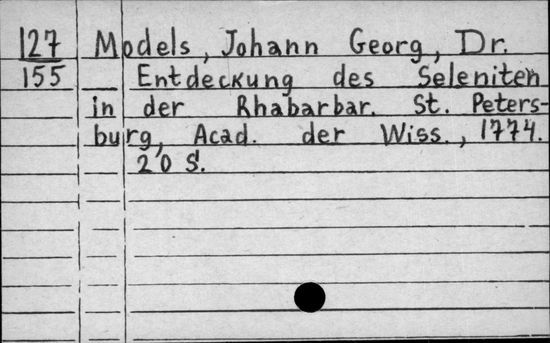 127 Models, Johann Georg, Dr.
155 Entdeckung des Seleniten
in der Rhabarbar. St. Peters-
burg, Acad. der Wiss., 1774.
20 S.